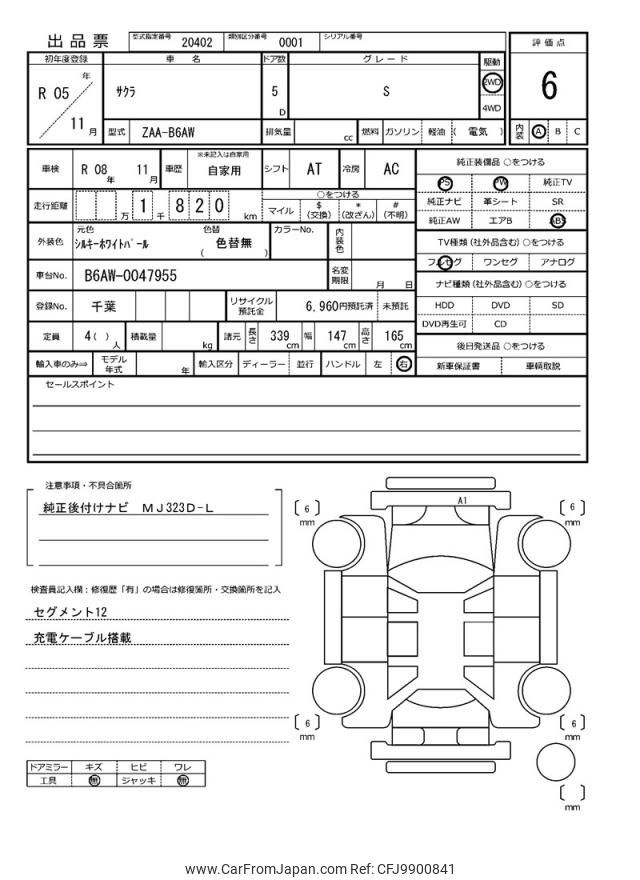 出品票 型式指定番号 20402 類別区分番号 0001 シリアル番号
評価点
6
内装 A B C
初年度登録 車名 ドア数 グレード 駆動
R 05 年 11 月 サクラ 5 D S 2WD 4WD
型式 ZAA-B6AW 排気量 cc 燃料 ガソリン 軽油 ( 電気 )
車検 R 08 年 11 月 車歴 ※未記入は自家用 自家用 シフト AT 冷房 AC
走行距離 万 1 千 8 2 0 km ○をつける
マイル $(交換) *(改ざん) #(不明)
外装色 元色 シルキーホワイトパール 色替 ( 色替無 ) カラーNo. 内装色
車台No. B6AW-0047955 名変期限 月 日
登録No. 千葉 リサイクル預託金 6,960円預託済 未預託
定員 4( ) 人 積載量 kg 諸元 長さ 339 cm 幅 147 cm 高さ 165 cm
輸入車のみ⇒ モデル年式 年 輸入区分 ディーラー 並行 ハンドル 左 右
純正装備品 ○をつける
PS PW 純正TV
純正ナビ 革シート SR
純正AW エアB ABS
TV種類 (社外品含む) ○をつける
フルセグ ワンセグ アナログ
ナビ種類 (社外品含む) ○をつける
HDD DVD SD
DVD再生可 CD
後日発送品 ○をつける
新車保証書 車輌取説
セールスポイント
注意事項・不具合箇所
純正後付けナビ MJ323D-L
検査員記入欄:修復歴「有」の場合は修復箇所・交換箇所を記入
セグメント12
充電ケーブル搭載
ドアミラー キズ ヒビ ワレ
工具 無 ジャッキ 無
A1
[ 6 ] mm
[ 6 ] mm
[ 6 ] mm
[ 6 ] mm
[ ] mm
www.CarFromJapan.com Ref: CFJ9900841